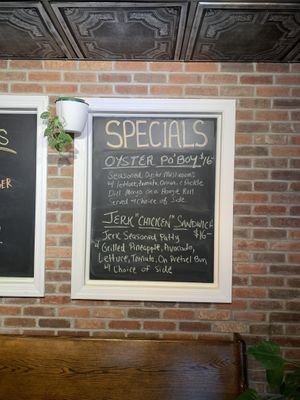 S
GER
SPECIALS
OYSTER PO'BOY $16-
Seasoned Oyster Mushrooms
w/ lettuce, tomato, Onion, & Pickle
Dill Mayo on a Hoagie Roll
Served w/ Choice of Side
JERK "CHICKEN" SANDWICH
$16-
Jerk Seasoned Patty
w/ Grilled Pineapple, Avocado,
Lettuce, Tomato, On Pretzel Bun
w/ Choice of Side